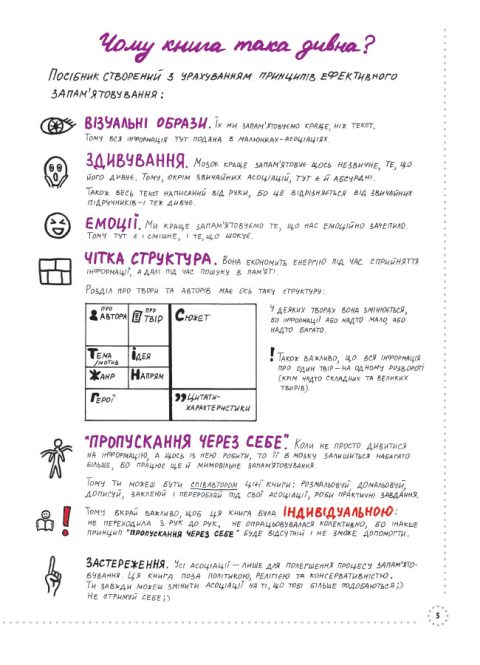 Чому книга така дивна?
Посібник створений з урахуванням принципів ефективного
запам'ятовування:
ВІЗУАЛЬНІ ОБРАЗИ. Їх ми запам'ятовуємо краще, ніж текст.
Тому вся інформація тут подана в малюнках-асоціаціях.
ЗДИВУВАННЯ. Мозок краще запам'ятовує щось незвичне, те, що
його дивує. Тому, окрім звичайних асоціацій, тут є й абсурдні.
Також весь текст написаний від руки, бо це відрізняється від звичайних
підручників – і теж дивує.
ЕМОЦІЇ. Ми краще запам'ятовуємо те, що нас емоційно зачепило.
Тому тут є і смішне, і те, що шокує.
ЧІТКА СТРУКТУРА. Вона економить енергію під час сприйняття
інформації, а далі під час пошуку в пам'яті.
Розділ про твори та авторів має ось таку структуру:
про автора
про твір
Сюжет
Тема/мотив
Ідея
Жанр
Напрям
Герої
Цитати-
характеристики
У деяких творах вона змінюється,
бо інформації або надто мало, або
надто багато.
! Також важливо, що вся інформація
про один твір – на одному розвороті
(крім надто складних та великих
творів).
"ПРОПУСКАННЯ ЧЕРЕЗ СЕБЕ". Коли не просто дивитися
на інформацію, а щось із нею робити, то її в мозку залишиться набагато
більше, бо працює ще й мимовільне запам'ятовування.
Тому ти можеш бути співавтором цієї книги: розмальовуй, домальовуй,
дописуй, заклеюй і переробляй під свої асоціації, роби практичні завдання.
! Тому вкрай важливо, щоб ця книга була ІНДИВІДУАЛЬНОЮ:
не переходила з рук до рук, не опрацьовувалася колективно, бо інакше
принцип "пропускання через себе" буде відсутній і не зможе допомогти.
ЗАСТЕРЕЖЕННЯ. Усі асоціації – лише для полегшення процесу запам'ято-
вування. Ця книга поза політикою, релігією та консервативністю.
Ти завжди можеш змінити асоціації на ті, що тобі більше подобаються ;)
Не стримуй себе ;)
5